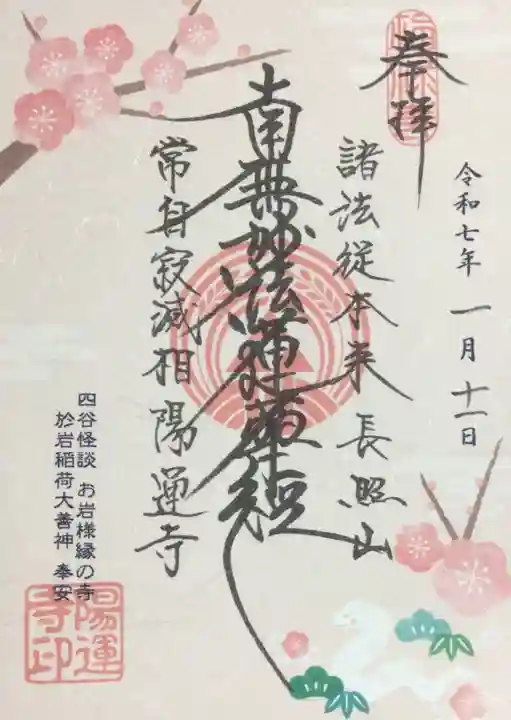 奉拝
令和七年一月十一日
諸法従本来 長照山
南無妙法蓮華経
常自寂滅相 陽運寺
四谷怪談 お岩様縁の寺
於岩稲荷大善神 奉安
陽運
寺印